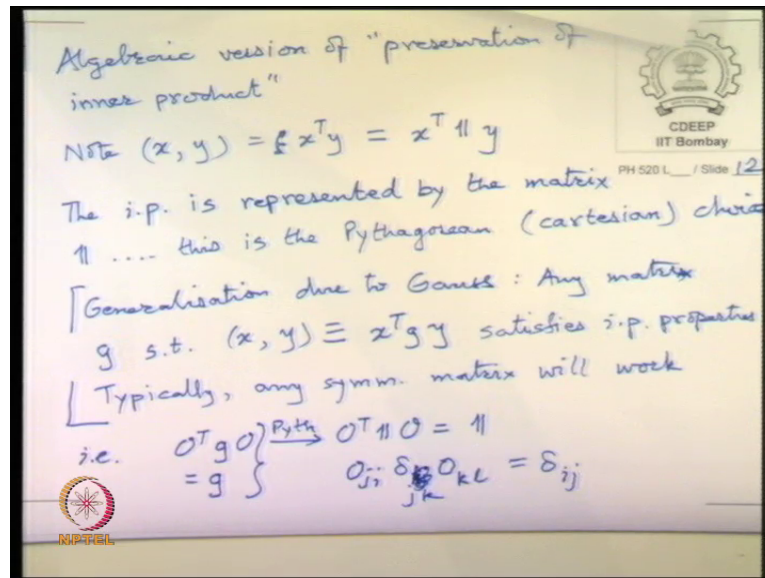 Algebraic version of "preservation of
inner product"
CDEEP
IIT Bombay
Note (x, y) = xᵀy = xᵀ 𝟙 y
PH 520 L__ / Slide 12
The i.p. is represented by the matrix
𝟙 .... this is the Pythagorean (cartesian) choic
Generalisation due to Gauss : Any matrix
g s.t. (x, y) ≡ xᵀg y satisfies i.p. properties
Typically, any symm. matrix will work
i.e. Oᵀ g O } Pyth → Oᵀ 𝟙 O = 𝟙
= g } Oⱼᵢ δⱼₖ Oₖₗ = δᵢⱼ
NPTEL